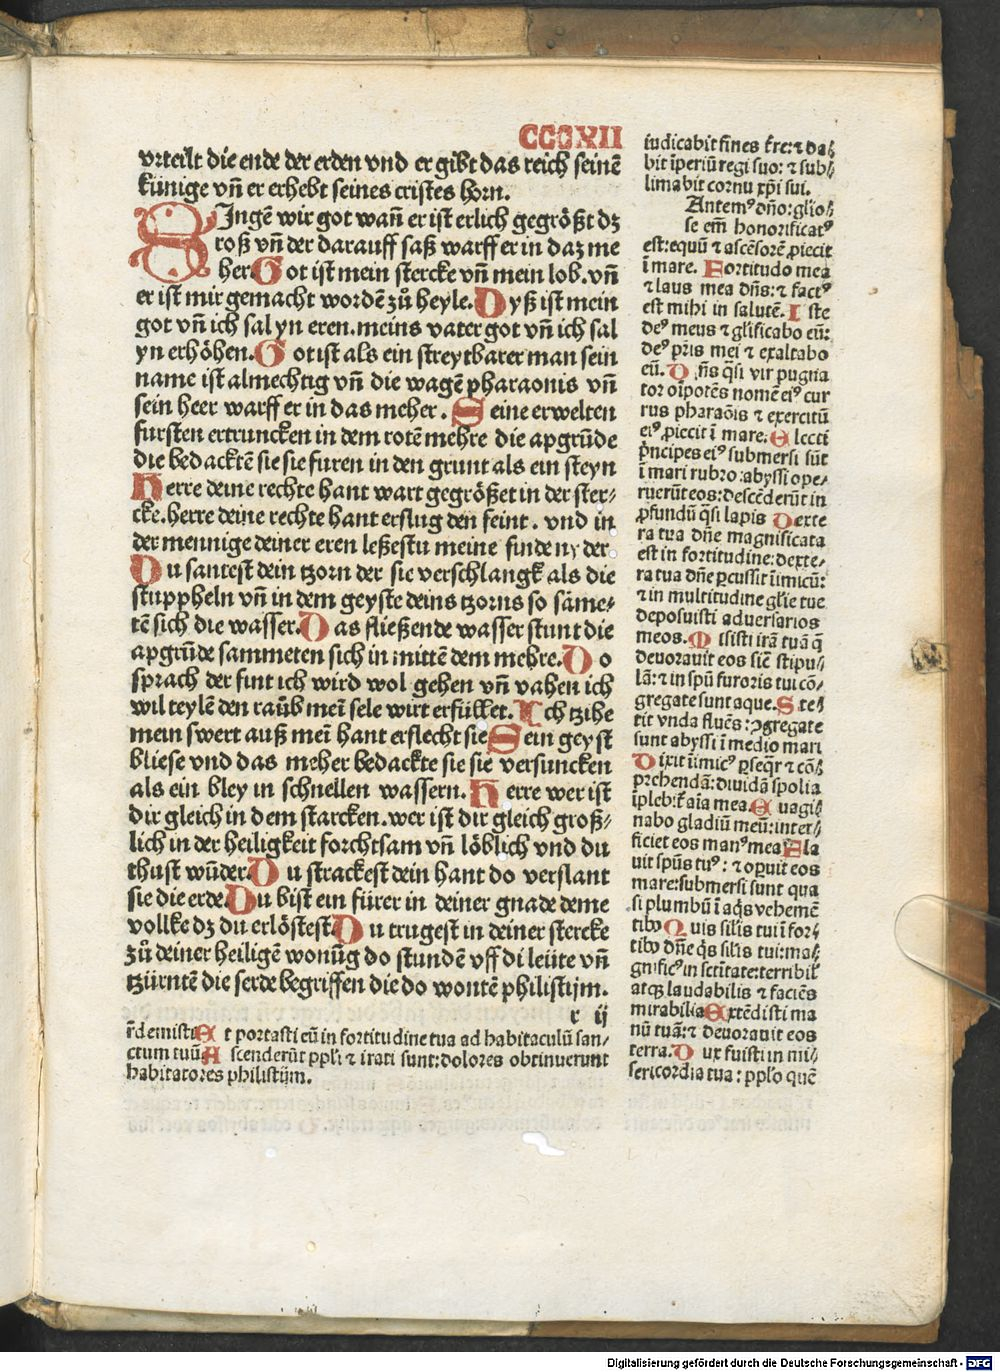 CCCXII
vrteilt die ende der erden vnd er gibt das reich seinē
künige vn̄ er erhebt seines cristes horn.
SIngē wir got wan̄ er ist erlich gegrößt dz
roß vn̄ der darauff saß warff er in daz me
her. Got ist mein stercke vn̄ mein lob. vn̄
er ist mir gemacht wordē zů heyle. Dyß ist mein
got vn̄ ich sal yn eren. meins vater got vn̄ ich sal
yn erhöhen. Got ist als ein streytbarer man sein
name ist almechtig vn̄ die wagē pharaonis vn̄
sein heer warff er in das meher. Seine erwelten
fursten ertruncken in dem rotē mehre die apgrūde
die bedacktē sie sie furen in den grunt als ein steyn
Herre deine rechte hant wart gegrößet in der ster⸗
cke. herre deine rechte hant erslug den feint. vnd in
der mennige deiner eren leßestu meine finde nyder
Du santest dein tzorn der sie verschlangk als die
stuppheln vn̄ in dem geyste deins tzorns so same⸗
tē sich die wasser. Das fließende wasser stunt die
apgrūde sammeten sich in mittē dem mehre. Do
sprach der fint ich wird wol gehen vn̄ vahen ich
wil teylē den raub mei̅ sele wirt erfüllet. Ich tzihe
mein swert auß mei̅ hant erslecht sie Sein geyst
bliese vnd das meher bedackte sie sie versuncken
als ein bley in schnellen wassern. Herre wer ist
dir gleich in dem starcken. wer ist dir gleich groß⸗
lich in der heiligkeit forchtsam vn̄ löblich vnd du
thust wūder. Du strackest dein hant do verslant
sie die erde. Du bist ein fürer in deiner gnade deme
vollke dz du erlöstest. Du trugest in deiner stercke
zů deiner heiligē wonūg do stundē vff di leüte vn̄
tzürntē die serde begriffen die do wontē philistijm.
r ij
iudicabit fines tr̄e: ⁊ da⸗
bit īperiū regi suo: ⁊ sub⸗
limabit cornu xp̄i sui.
Cantemꝰ dn̄o: gl̄io⸗
se em̄ honorificatꝰ
est: equū ⁊ ascēsorē ꝓiecit
ī mare. Fortitudo mea
⁊ laus mea dn̄s: ⁊ factꝰ
est mihi in salutē. Iste
deꝰ meus ⁊ gl̄ificabo eū:
deꝰ pr̄is mei ⁊ exaltabo
eū. Dn̄s q̄si vir pugna
tor oīpotēs nomē eiꝰ cur
rus pharaōis ⁊ exercitū
eiꝰ ꝓiecit ī mare. Electi
pͥncipes eiꝰ submersi sūt
ī mari rubro: abyssi ope⸗
ruerūt eos: descēderūt in
ꝓfundū q̄si lapis Dexte
ra tua dn̄e magnificata
est in fortitudine: dexte⸗
ra tua dn̄e ꝑcussit īimicū:
⁊ in multitudine gl̄ie tue
deposuisti aduersarios
meos. Misisti irā tuā q̄
deuorauit eos sic̄ stipu⸗
lā: ⁊ in sp̄u furoris tui cō⸗
gregate sunt aque. Ste⸗
tit vnda fluēs: ꝯgregate
sunt abyssi ī medio mari
Dixit īimicꝰ ꝑseq̄r ⁊ cō⸗
prehendā: diuidā spolia
īplebit̄ aīa mea. Euagi⸗
nabo gladiū meū: inter⸗
ficiet eos manꝰ mea Fla
uit spūs tuꝰ: ⁊ oꝑuit eos
mare: submersi sunt qua
si plumbū ī aq̄s vehemē
tibꝰ Quis sil̄is tui ī for⸗
tibꝰ dn̄e q̄s sil̄is tui: ma⸗
gnificꝰ in sctītate: terribil̄
atqꝫ laudabilis ⁊ faciēs
mirabilia Extēdisti ma
nū tuā: ⁊ deuorauit eos
terra. Dux fuisti in mi⸗
sericordia tua: ppl̄o quē
r̄demisti. Et portasti eū in fortitudine tua ad habitaculū san⸗
ctum tuū Ascenderūt ppl̄i ⁊ irati sunt: dolores obtinuerunt
habitatores philistijm.
Digitalisierung gefördert durch die Deutsche Forschungsgemeinschaft - DFG